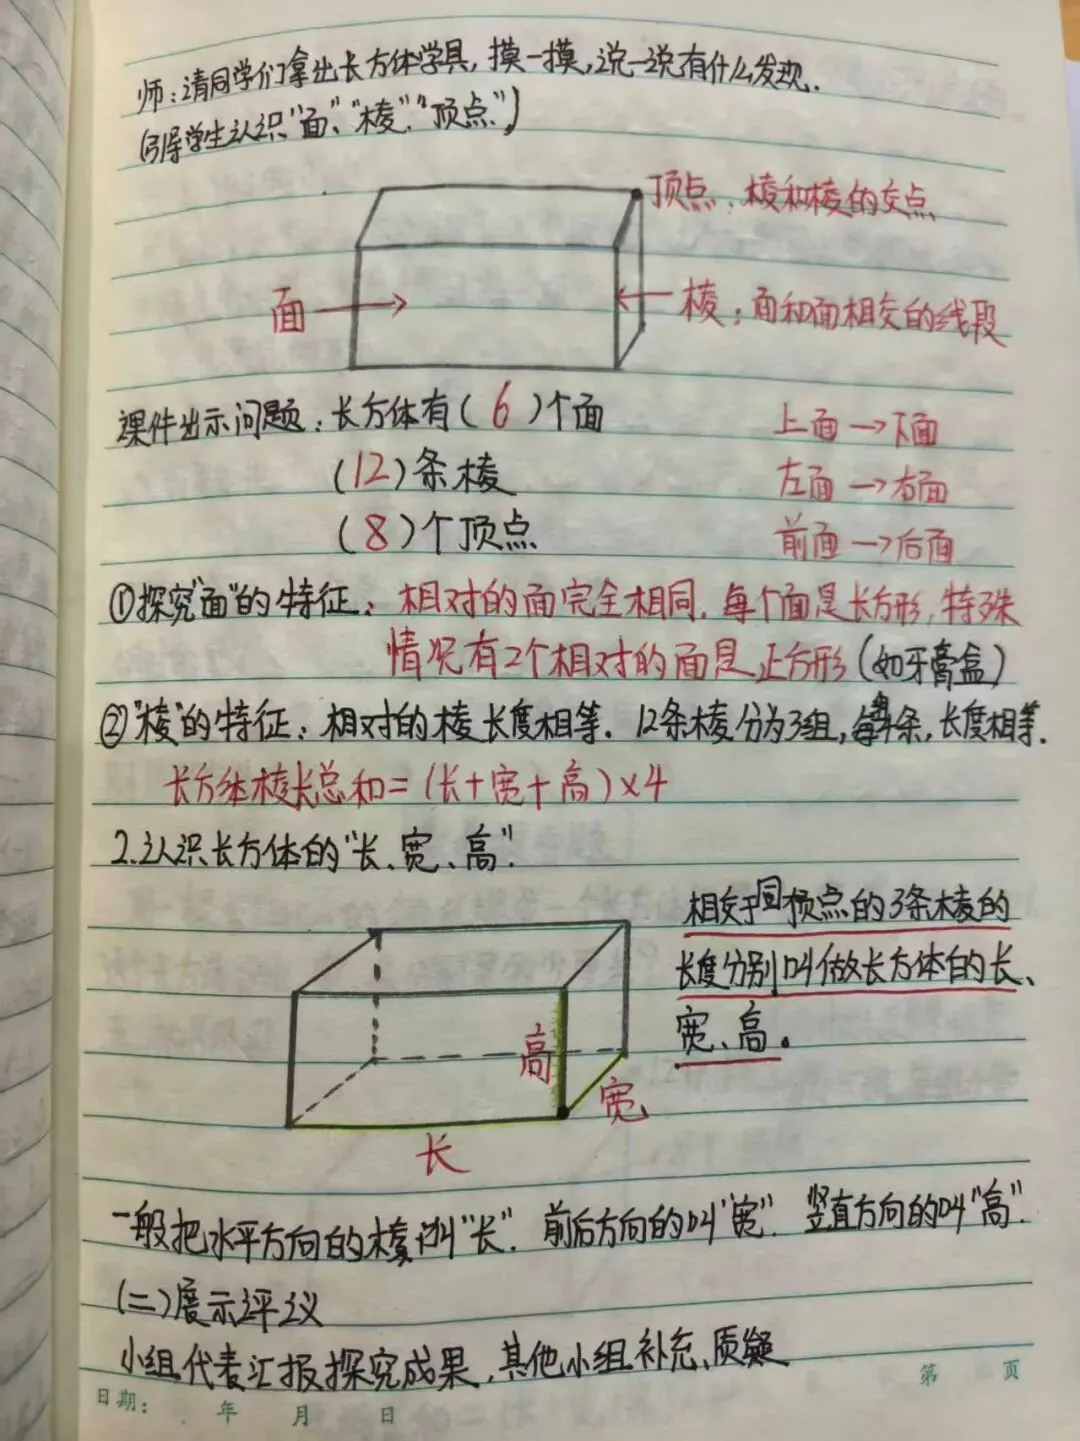 师:请同学们拿出长方体学具,摸一摸,说一说有什么发现.
(引导学生认识"面"、"棱"、"顶点")
顶点:棱和棱的交点
面
棱:面和面相交的线段
课件出示问题:长方体有(6)个面
上面→下面
(12)条棱
左面→右面
(8)个顶点
前面→后面
①探究"面"的特征:相对的面完全相同.每个面是长方形,特殊
情况有2个相对的面是正方形(如牙膏盒)
②"棱"的特征:相对的棱长度相等.12条棱分为3组,每4条,长度相等.
长方体棱长总和=(长+宽+高)×4
2.认识长方体的"长、宽、高".
相交于回顶点的3条棱的
长度分别叫做长方体的长、
宽、高。
高
宽
长
一般把水平方向的棱叫"长".前后方向的叫"宽".竖直方向的叫"高".
(二)展示评议
小组代表汇报探究成果,其他小组补充、质疑
第 页
日期: 年 月 日